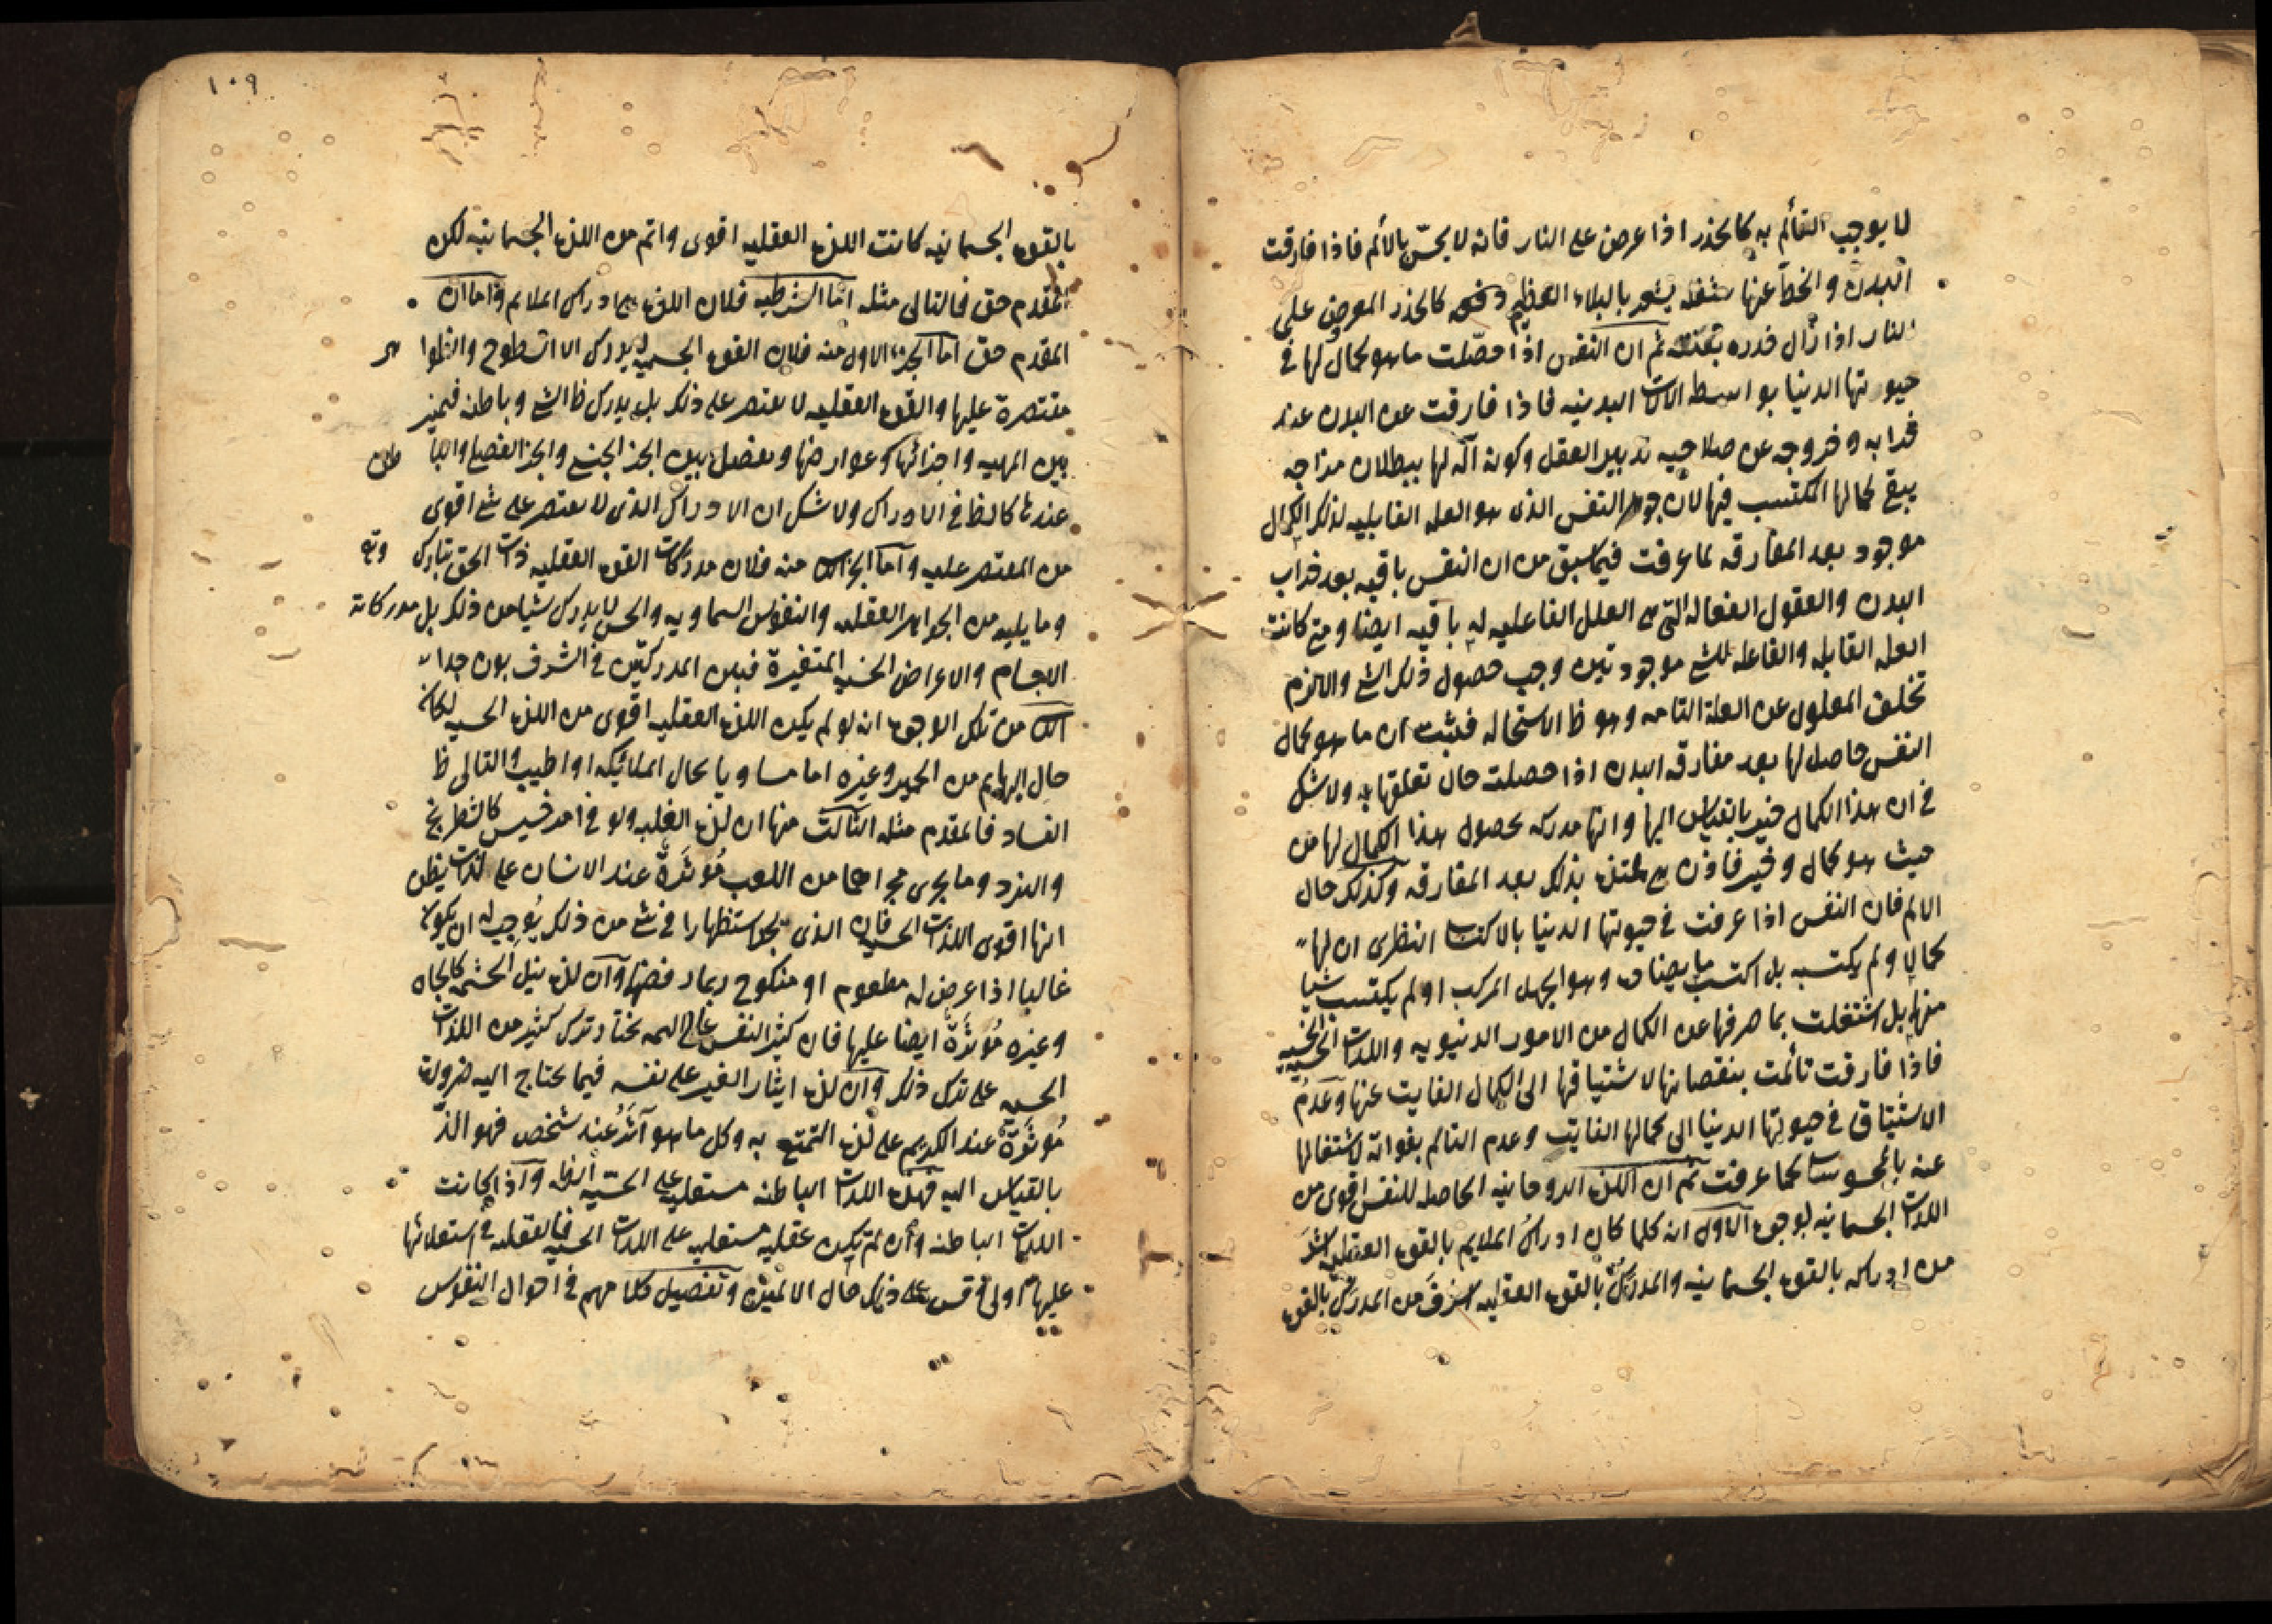 لا يوجب التألم به كالخدر اذا عرض على النار فانه لا يحسّ بالألم فاذا فارقت
البدن وانحطّ عنها شغله يشعر بالبلاء العظيم دفعه كالخدر المعروض على
النار اذا زال خدره بغتة ثم ان النفس اذا حصّلت ما هو كمال لها فى
حيوتها الدنيا بواسطه الالات البدنيه فاذا فارقت عن البدن عند
خرابه وخروجه عن صلاحيه تدبير العقل وكونه آله لها ببطلان مزاجه
يبقى كمالها المكتسب فيها لان جوهر النفس الذى هو العله القابليه لذلك الكمال
موجود بعد المفارقه لما عرفت فيما سبق من ان النفس باقيه بعد خراب
البدن والعقول الفعاله التى هى العلل الفاعليه له باقيه ايضا ومتى كانت
العله القابله والفاعله للشئ موجودتين وجب حصول ذلك الشئ والا لزم
تخلف المعلول عن العلة التامه وهو ظ الاستحاله فثبت ان ما هو كمال
النفس حاصل لها بعد مفارقه البدن اذا حصلت حال تعلقها به ولا شك
فى ان هذا الكمال خير بالقياس اليها وانها مدركه بحصول هذا الكمال لها من
حيث هو كمال وخير فاذن هى ملتذه بذلك بعد المفارقه وكذلك حال
الالم فان النفس اذا عرفت فى حيوتها الدنيا بالاكتساب النظرى ان لها
كمالا ولم يكتسبه بل اكتسب ما يضاده وهو الجهل المركب او لم يكتسب شيا
منها بل اشتغلت بما صرفها عن الكمال من الامور الدنيويه واللذات الحسيه
فاذا فارقت تألمت بنقصانها لاشتياقها الى الكمال الفايت عنها وعدم
الاشتياق فى حيوتها الدنيا الى كمالها الفايت وعدم التالم بفواته لاشتغالها
عنه بالمحسوسات كما عرفت ثم ان اللذه الروحانيه الحاصله للنفس اقوى من
اللذات الجسمانيه لوجوه الاول انه كلما كان ادراك الملايم بالقوه العقليه اشد
من ادراكه بالقوه الجسمانيه والمدرك بالقوه العقليه اشرف من المدرك بالقوه
١٠٩
بالقوه الجسمانيه كانت اللذه العقليه اقوى واتم من اللذه الجسمانيه لكن
المقدم حق فالتالى مثله اما الشرطيه فلان اللذه هى ادراك الملايم واما ان
المقدم حق اما الجزء الاول منه فلان القوه الحسيه لا يدرك الا السطوح والظواهر
مقتصرة عليها والقوه العقليه لا يقتصر على ذلك بل يدرك ظ الشئ وباطنه فيميز
بين المهيه واجزائها وعوارضها ويفصل بين الجزء الجنسى والجزء الفصلى والباطن
عندها كالظ فى الادراك ولا شك ان الادراك الذى لا يقتصر على شئ اقوى
من المقتصر عليه واما الجزء الثانى منه فلان مدركات القوه العقليه ذات الحق تبارك وتع
وما يليه من الجواهر العقليه والنفوس السماويه والحس لا يدرك شيا من ذلك بل مدركاته
الاجسام والاعراض الخسيسه المتغيرة فبين المدركتين فى الشرف بون جدا
الثانى من تلك الوجوه انه لو لم يكن اللذه العقليه اقوى من اللذه الحسيه لكان
حال البهايم من الحمير وغيره اما مساويا لحال الملائيكه او اطيب والتالى ظ
الفساد فالمقدم مثله الثالث منها ان لذه الغلبه ولو فى امر خسيس كالشطرنج
والنرد وما يجرى مجراهما من اللعب مُوثَرة عند الانسان على لذات يظن
انها اقوى اللذات الحسيه فان الذى يجد استظهارا فى شئ من ذلك يُوجب له ان يكون
غالبا اذا عرض له مطعوم او منكوح ربما رفضها وان لذه نيل الحشمه كالجاه
وغيره مُوثَرة ايضا عليها فان كبير النفس عالى الهمه يختار ترك كثير من اللذات
الحسيه على ترك ذلك وان لذه ايثار الغير على نفسه فيما يحتاج اليه ضرورة
مُوثَرة عند الكريم على لذه التمتع به وكل ما هو آثر عند شخص فهو الذّ
بالقياس اليه فهذه اللذات الباطنه مستعليه على الحسّيه الظ واذا كانت
اللذات الباطنه وان لم يكن عقليه مستعليه على اللذات الحسيه فالعقليه فى استعلائها
عليها اولى وقس على ذلك حال الالمين وتفصيل كلامهم فى احوال النفوس